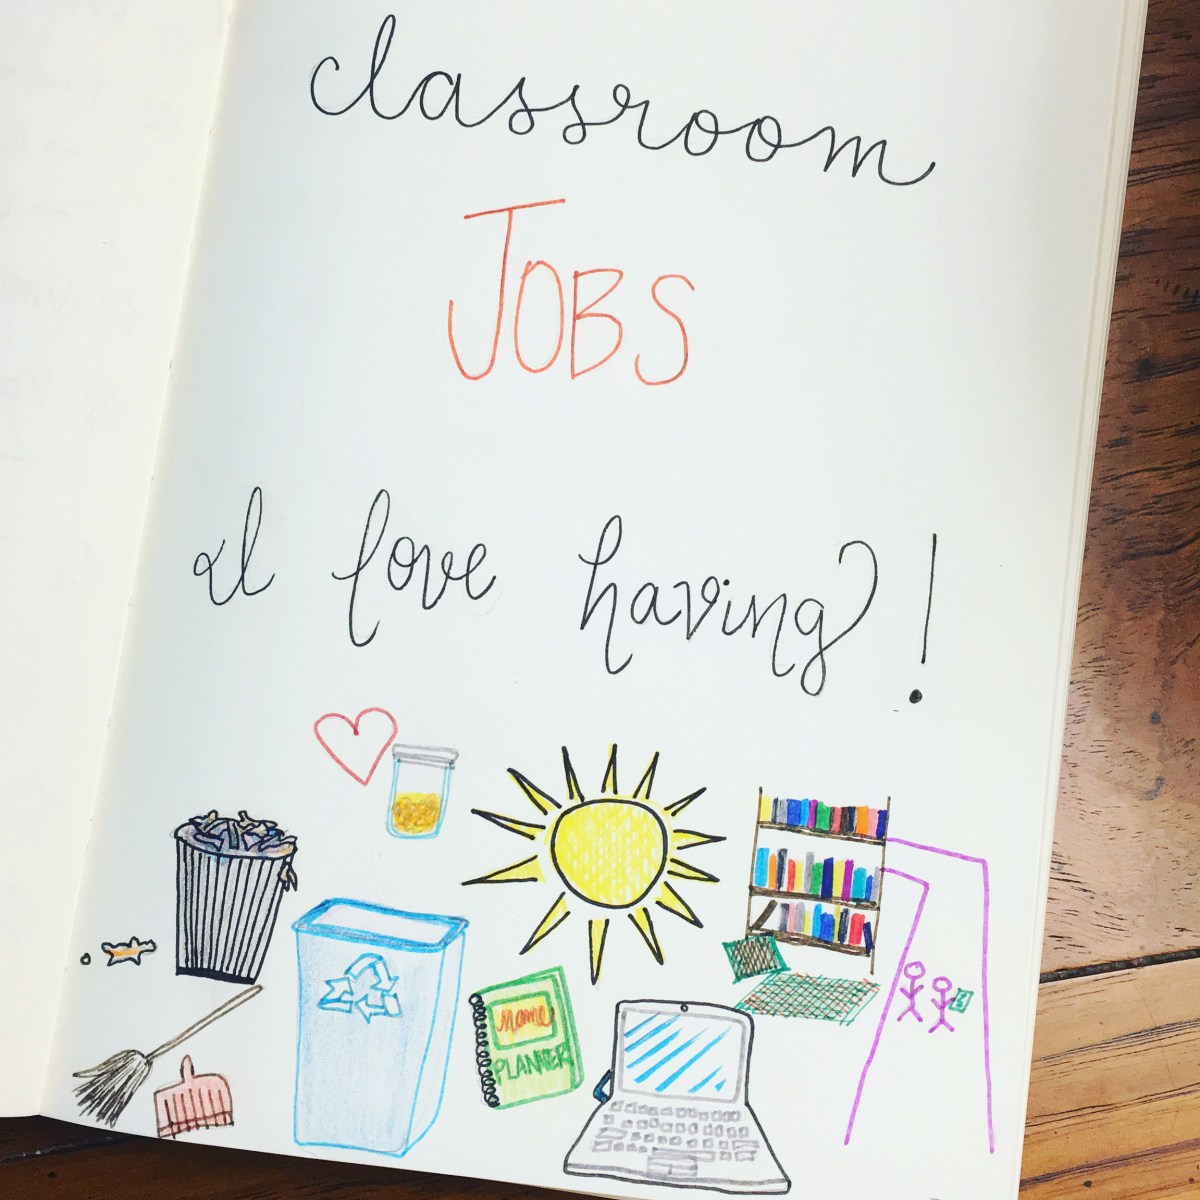 classroom
JOBS
I love having!
name
PLANNER